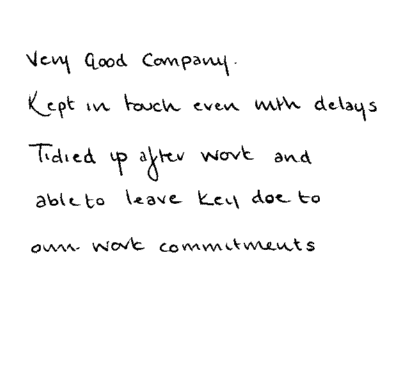 Very Good Company.
Kept in touch even with delays
Tidied up after work and
able to leave key doe to
own work commitments